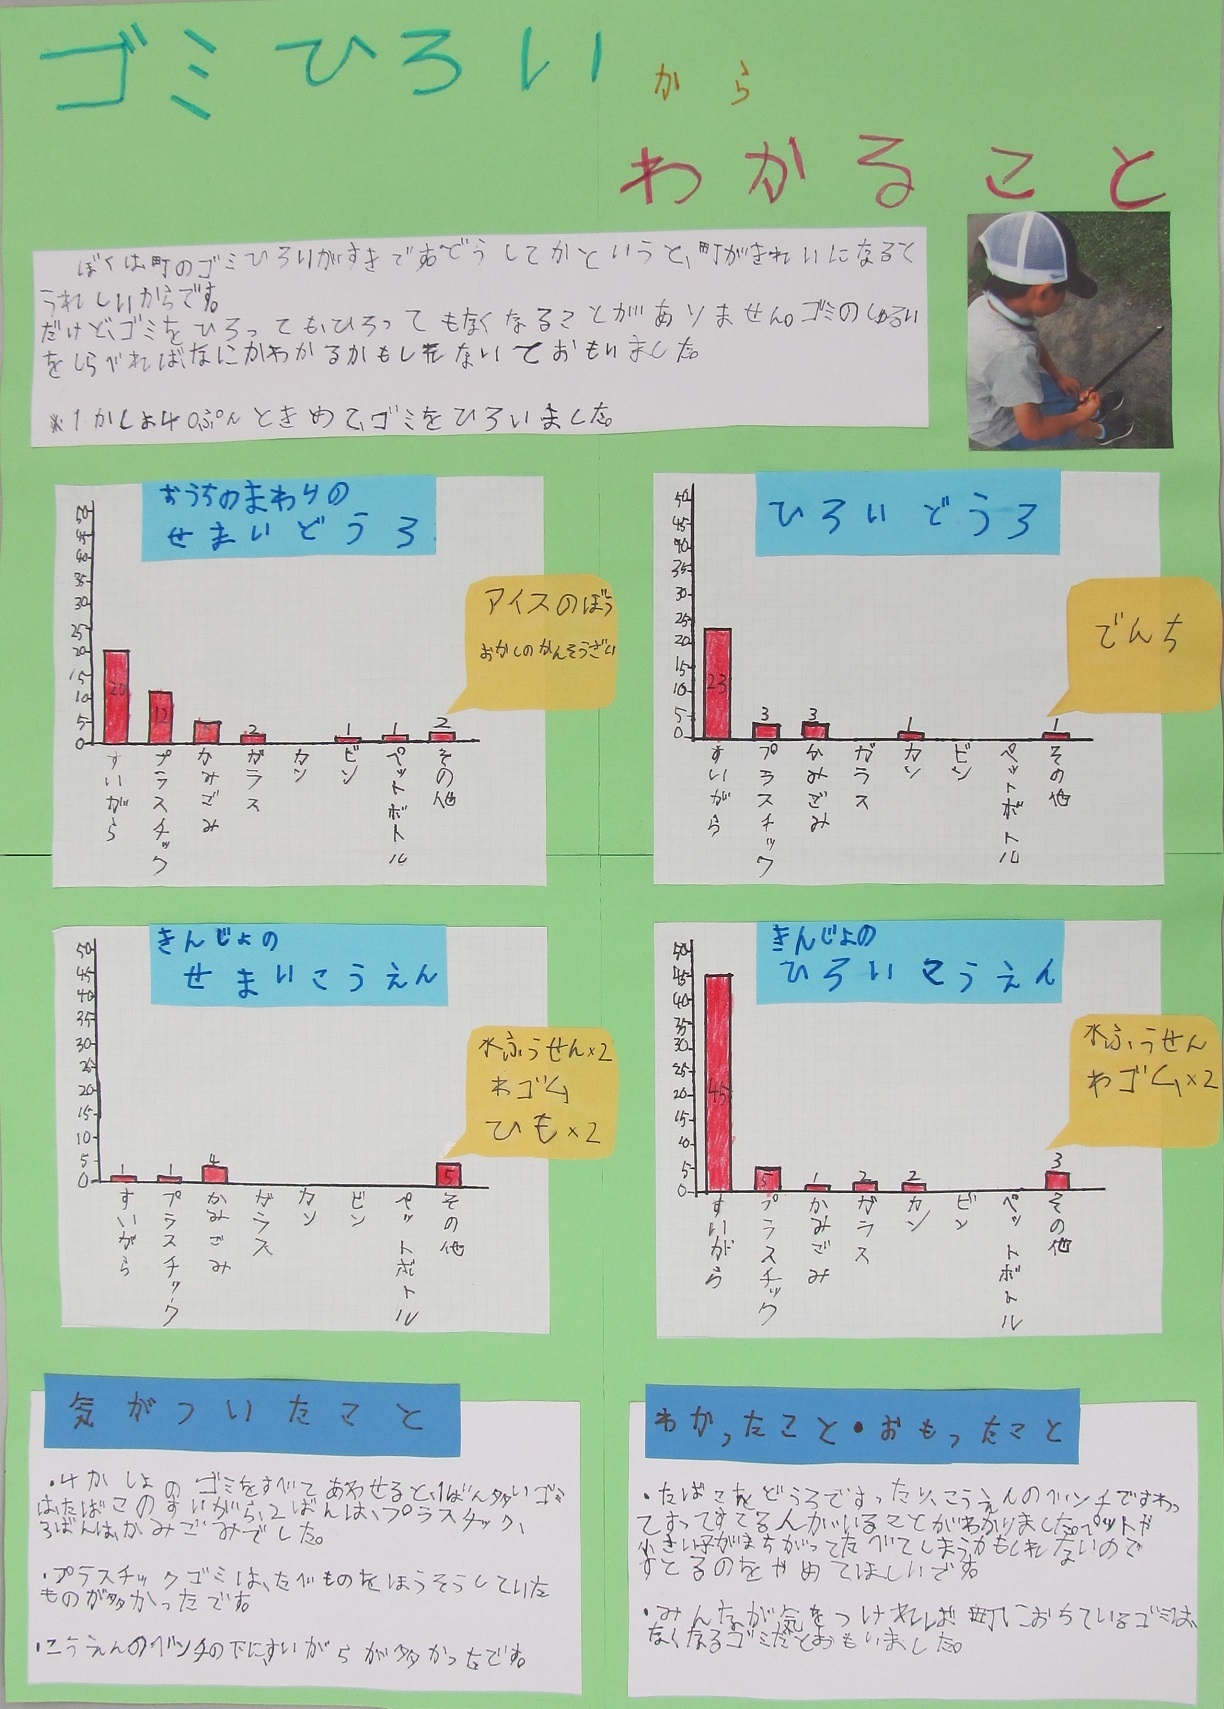 ゴミひろいから
わかること
ぼくは、町のゴミひろいがすきです。どうしてかというと、町がきれいになると
うれしいからです。
だけど、ゴミをひろっても、ひろってもなくなることがありません。ゴミのしゅるい
をしらべれば、なにかわかるかもしれないとおもいました。
※1かしょ40ぷんときめて、ゴミをひろいました。
おうちのまわりの
せまいどうろ
50
45
40
35
30
25
20
15
10
5
0
20
12
2
1
1
2
すいがら
プラスチック
かみごみ
ガラス
カン
ビン
ペットボトル
その他
アイスのぼう
おかしのかんそうざい
ひろいどうろ
50
45
40
35
30
25
20
15
10
5
0
23
3
3
1
1
すいがら
プラスチック
かみごみ
ガラス
カン
ビン
ペットボトル
その他
でんち
きんじょの
せまいこうえん
50
45
40
35
30
25
20
15
10
5
0
1
1
4
5
すいがら
プラスチック
かみごみ
ガラス
カン
ビン
ペットボトル
その他
水ふうせん×2
わゴム
ひも×2
きんじょの
ひろいこうえん
50
45
40
35
30
25
20
15
10
5
0
45
5
1
2
2
3
すいがら
プラスチック
かみごみ
ガラス
カン
ビン
ペットボトル
その他
水ふうせん
わゴム×2
気がついたこと
・4かしょのゴミをすべてあわせると、1ばん多いゴミ
は、たばこのすいがら、2ばんは、プラスチック、
3ばんは、かみごみでした。
・プラスチックゴミは、たべものをほうそうしていた
ものが多かったです。
・こうえんのベンチの下に、すいがらが多かったです。
わかったこと・おもったこと
・たばこをどうろですったり、こうえんのベンチですわっ
てすってすてる人がいることがわかりました。ペットや
小さい子がまちがってたべてしまうかもしれないので
すとるのをやめてほしいです。
・みんなが気をつければ町におちているゴミは、
なくなるゴミだとおもいました。